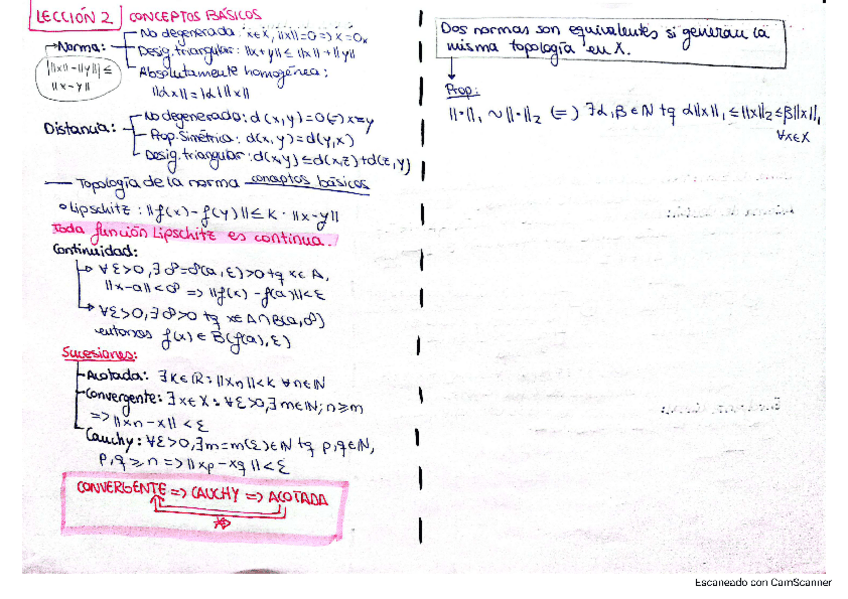 LECCIÓN 2 CONCEPTOS BÁSICOS
→Norma:
No degenerada: x∈X, ||x||=0 => x=0x
Desig. triangular: ||x+y|| ≤ ||x||+||y||
Absolutamente homogénea:
||αx||=|α| ||x||
| ||x|| - ||y|| | ≤
||x-y||
Distancia:
No degenerado: d(x,y)=0 (=) x=y
Prop. Simétrica: d(x,y)=d(y,x)
Desig. triangular: d(x,y)≤d(x,z)+d(z,y)
— Topología de la norma conceptos básicos
Lipschitz: ||f(x)-f(y)|| ≤ K·||x-y||
Toda función Lipschitz es continua.
Continuidad:
∀ε>0, ∃δ=δ(a,ε)>0 tq x∈A,
||x-a||<δ => ||f(x)-f(a)||<ε
∀ε>0, ∃δ>0 tq x∈A∩B(a,δ)
entonces f(x)∈B(f(a),ε)
Sucesiones:
Acotada: ∃K∈ℝ: ||xn||<K ∀n∈ℕ
Convergente: ∃x∈X: ∀ε>0, ∃m∈ℕ; n≥m
=> ||xn-x||<ε
Cauchy: ∀ε>0, ∃m=m(ε)∈ℕ tq p,q∈ℕ,
p,q≥n => ||xp-xq||<ε
CONVERGENTE => CAUCHY => ACOTADA
Dos normas son equivalentes si generan la
misma topología en X.
Prop:
||·||₁ ~ ||·||₂ (=) ∃α,β∈ℕ tq α||x||₁ ≤ ||x||₂ ≤ β||x||₁
∀x∈X
Escaneado con CamScanner